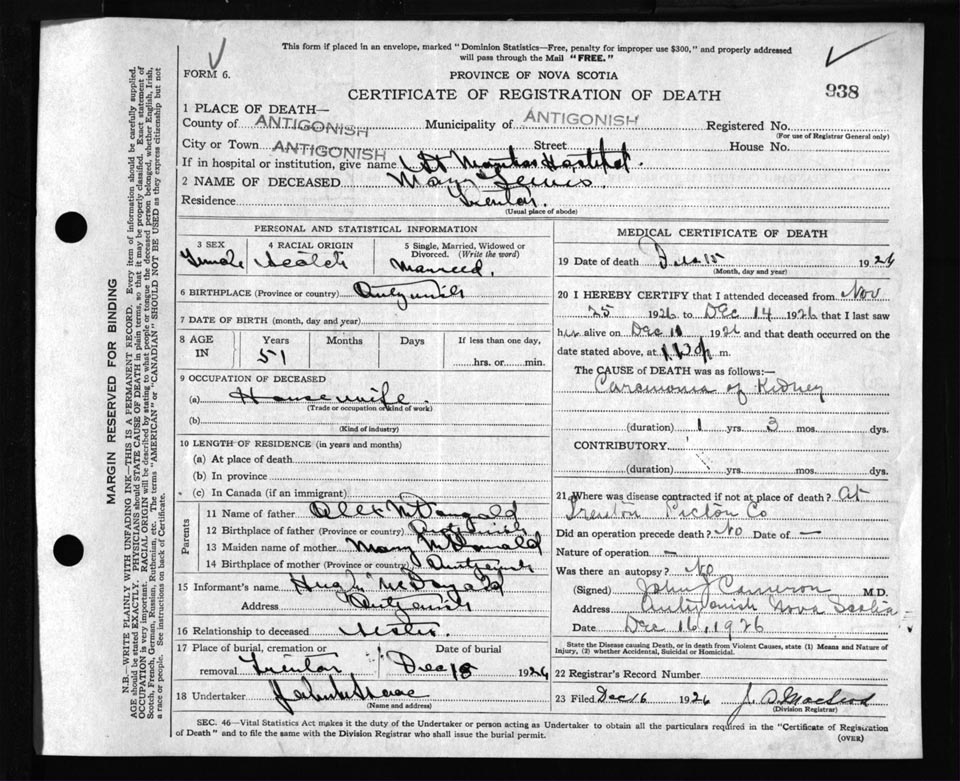 This form if placed in an envelope, marked "Dominion Statistics—Free, penalty for improper use $300," and properly addressed
will pass through the Mail "FREE."
FORM 6.
PROVINCE OF NOVA SCOTIA
CERTIFICATE OF REGISTRATION OF DEATH
938
1 PLACE OF DEATH—
County of ANTIGONISH Municipality of ANTIGONISH Registered No.
(For use of Registrar General only)
City or Town ANTIGONISH Street House No.
If in hospital or institution, give name St Marthas Hospital.
2 NAME OF DECEASED Mary Lewis.
Residence Trenton.
(Usual place of abode)
PERSONAL AND STATISTICAL INFORMATION
3 SEX 4 RACIAL ORIGIN 5 Single, Married, Widowed or
Divorced. (Write the word)
Female Scotch Married.
6 BIRTHPLACE (Province or country) Antigonish
7 DATE OF BIRTH (month, day and year)
8 AGE IN Years Months Days If less than one day,
51 hrs. or min.
9 OCCUPATION OF DECEASED
(a) Housewife.
(Trade or occupation or kind of work)
(b)
(Kind of industry)
10 LENGTH OF RESIDENCE (in years and months)
(a) At place of death
(b) In province
(c) In Canada (if an immigrant)
Parents
11 Name of father Alex McDougald
12 Birthplace of father (Province or country) Antigonish
13 Maiden name of mother Mary McDonald
14 Birthplace of mother (Province or country) Antigonish
15 Informant's name Hugh McDougald
Address Antigonish
16 Relationship to deceased
17 Place of burial, cremation or Date of burial
removal Trenton Dec 18 1926
18 Undertaker
(Name and address)
MEDICAL CERTIFICATE OF DEATH
19 Date of death 15 1926
(Month, day and year)
20 I HEREBY CERTIFY that I attended deceased from Nov
25 1926 to Dec 14 1926 that I last saw
her alive on Dec 1926 and that death occurred on the
date stated above, at m.
The CAUSE of DEATH was as follows:—
Carcinoma of Kidney
(duration) 1 yrs. 3 mos. dys.
CONTRIBUTORY
(duration) yrs. mos. dys.
21 Where was disease contracted if not at place of death? At
Trenton Pictou Co
Did an operation precede death? No Date of —
Nature of operation —
Was there an autopsy? No
(Signed) John J Cameron M.D.
Address Antigonish Nova Scotia
Date Dec 16, 1926
State the Disease causing Death, or in death from Violent Causes, state (1) Means and Nature of
Injury, (2) whether Accidental, Suicidal or Homicidal.
22 Registrar's Record Number
23 Filed Dec 16 1926
(Division Registrar)
SEC. 46—Vital Statistics Act makes it the duty of the Undertaker or person acting as Undertaker to obtain all the particulars required in the "Certificate of Registration
of Death" and to file the same with the Division Registrar who shall issue the burial permit.
(OVER)
MARGIN RESERVED FOR BINDING
N.B.—WRITE PLAINLY WITH UNFADING INK—THIS IS A PERMANENT RECORD. Every item of information should be carefully supplied.
AGE should be stated EXACTLY. PHYSICIANS should STATE CAUSE OF DEATH in plain terms, so that it may be properly classified. Exact statement of
OCCUPATION is very important. RACIAL ORIGIN will be described by stating to what people or tongue the deceased person belonged, whether English, Irish,
Scotch, French, German, Russian, Ruthenian, etc. The terms "AMERICAN" or "CANADIAN" SHOULD NOT BE USED as they express citizenship but not
a race or people. See instructions on back of Certificate.